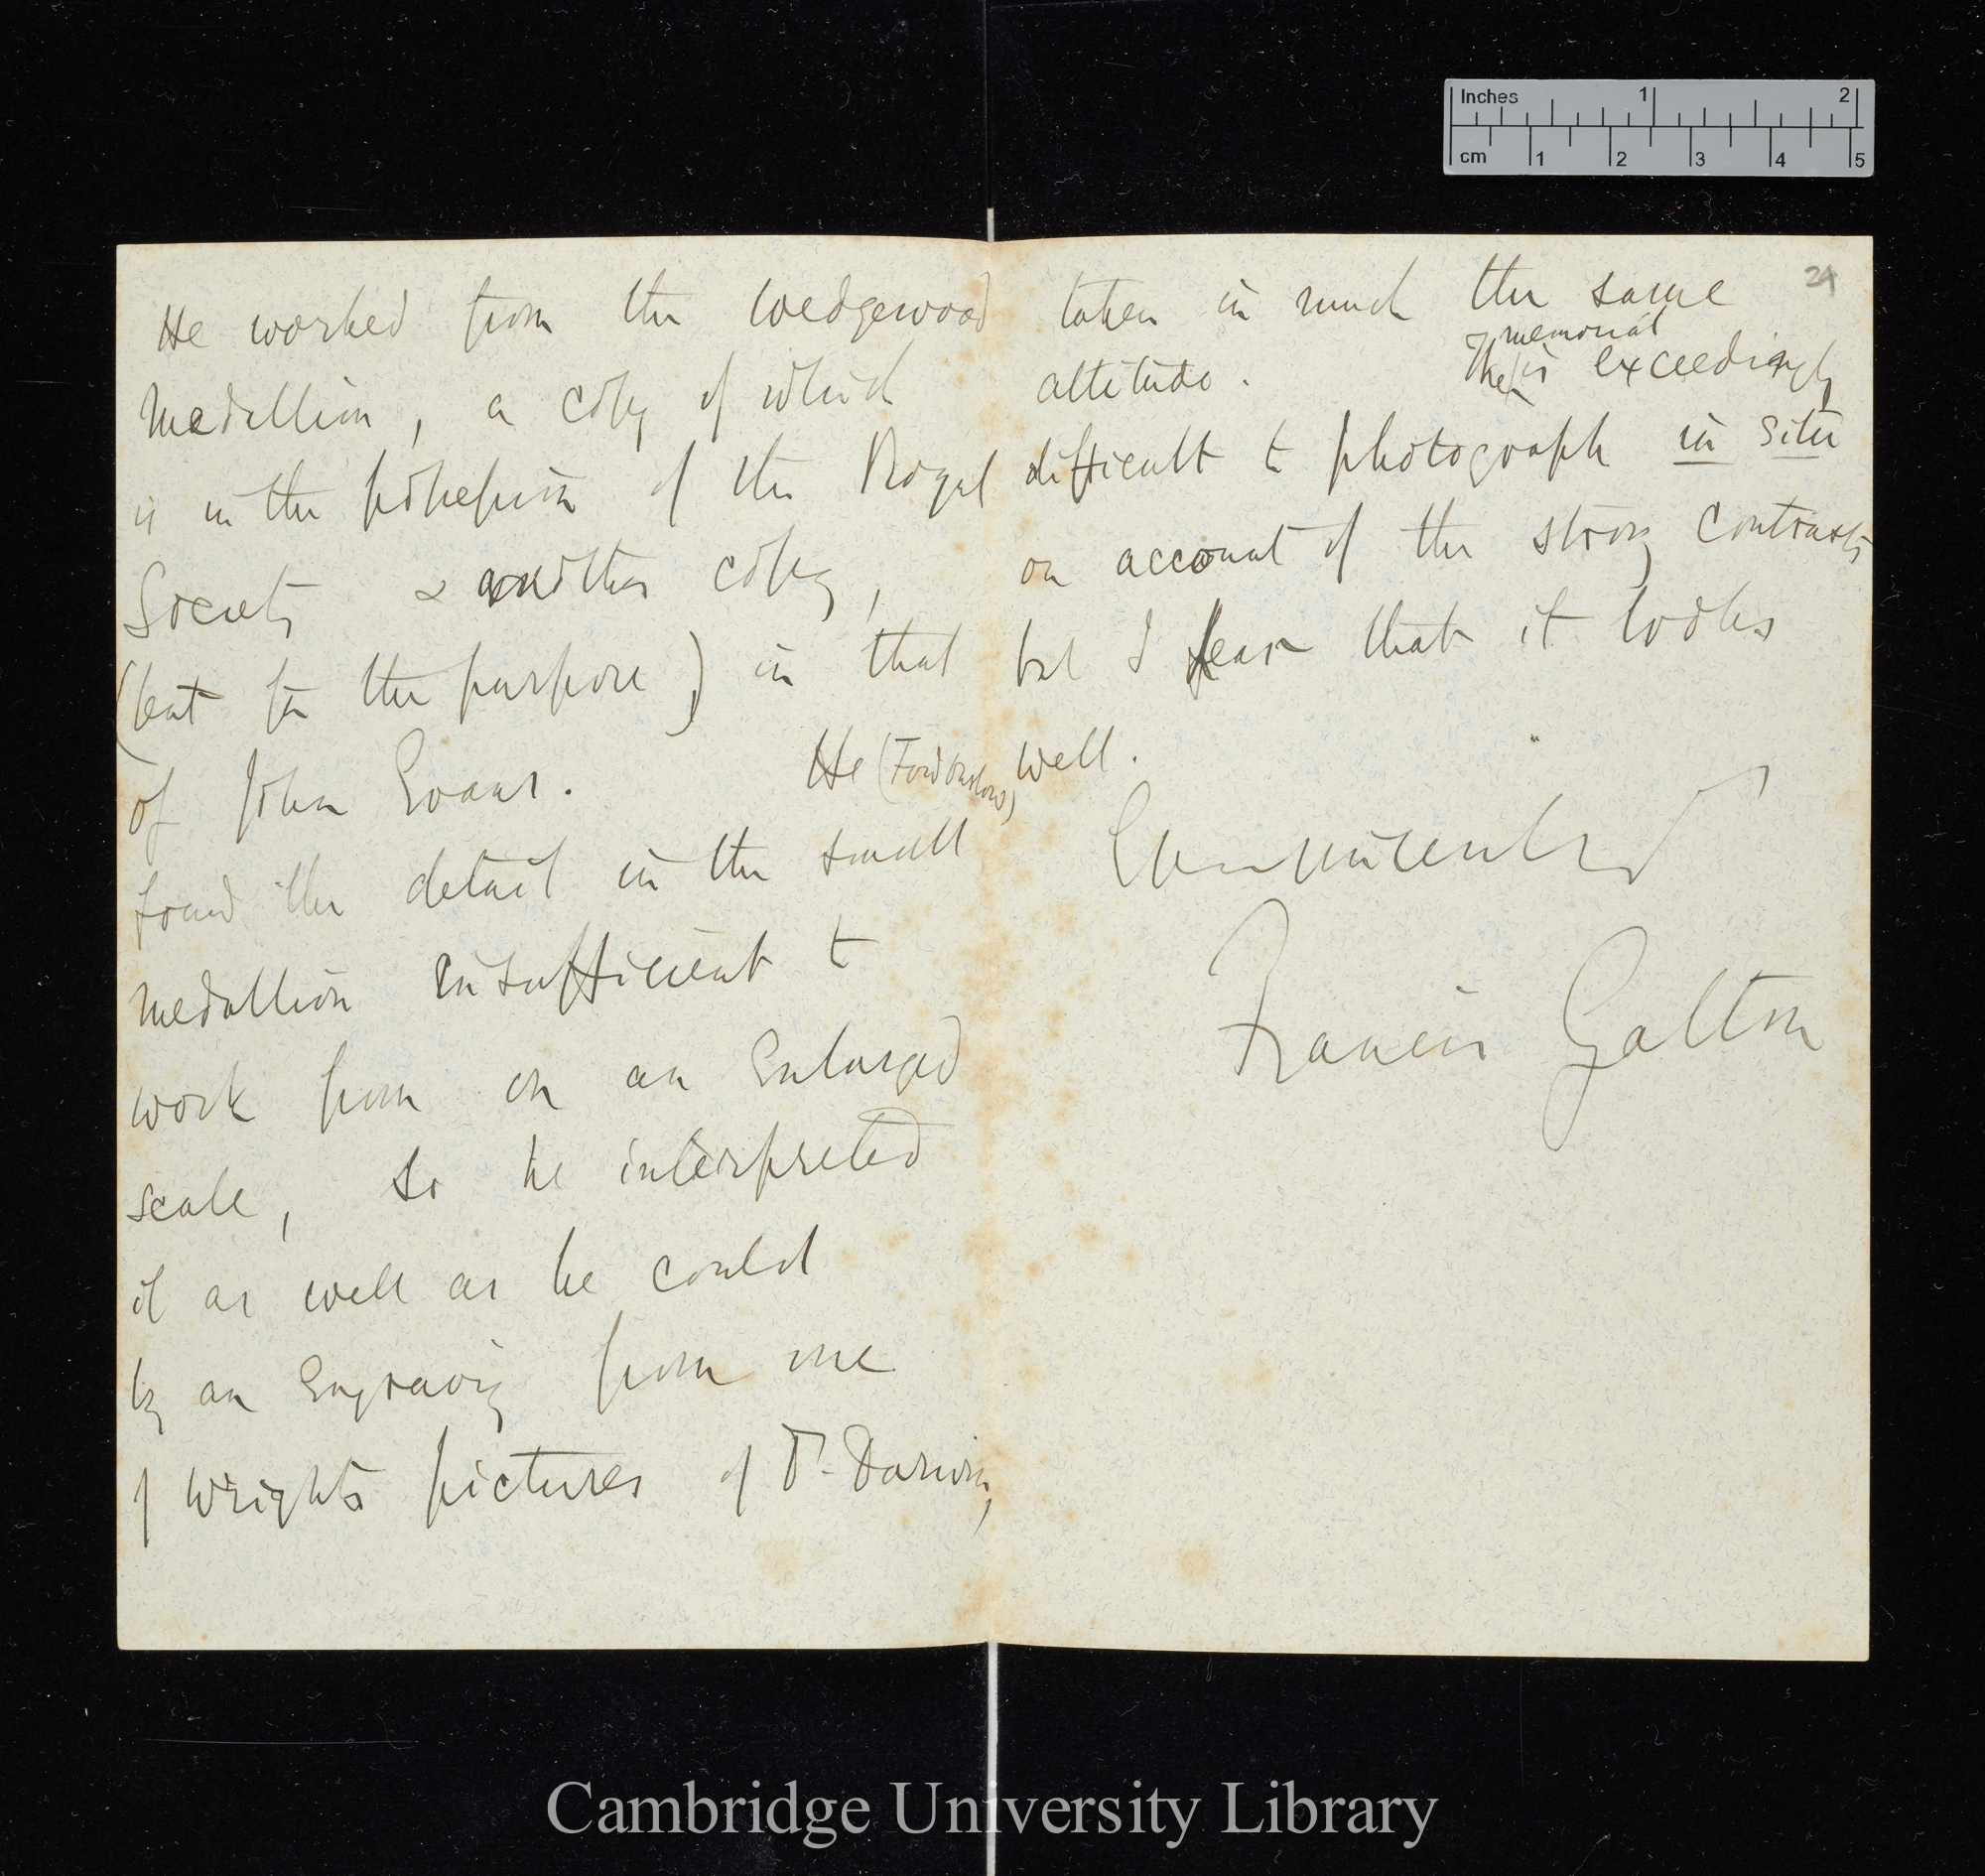 He worked from the Wedgewood
Medallion, a copy of which
is in the possession of the Royal
Society & another copy,
(lent for the purpose) in that
of John Evans. He (Ford Onslow)
found the detail in the small
medallion insufficient to
work from on an Enlarged
scale, so he interpreted
it as well as he could
by an Engraving from one
of Wrights pictures of Dr. Darwin,
24
taken in much the same
attitude. The memorial is exceedingly
difficult to photograph in situ
on account of the strong contrasts
but I fear that it looks
well.
Francis Galton
Inches 1 2
cm 1 2 3 4 5
Cambridge University Library